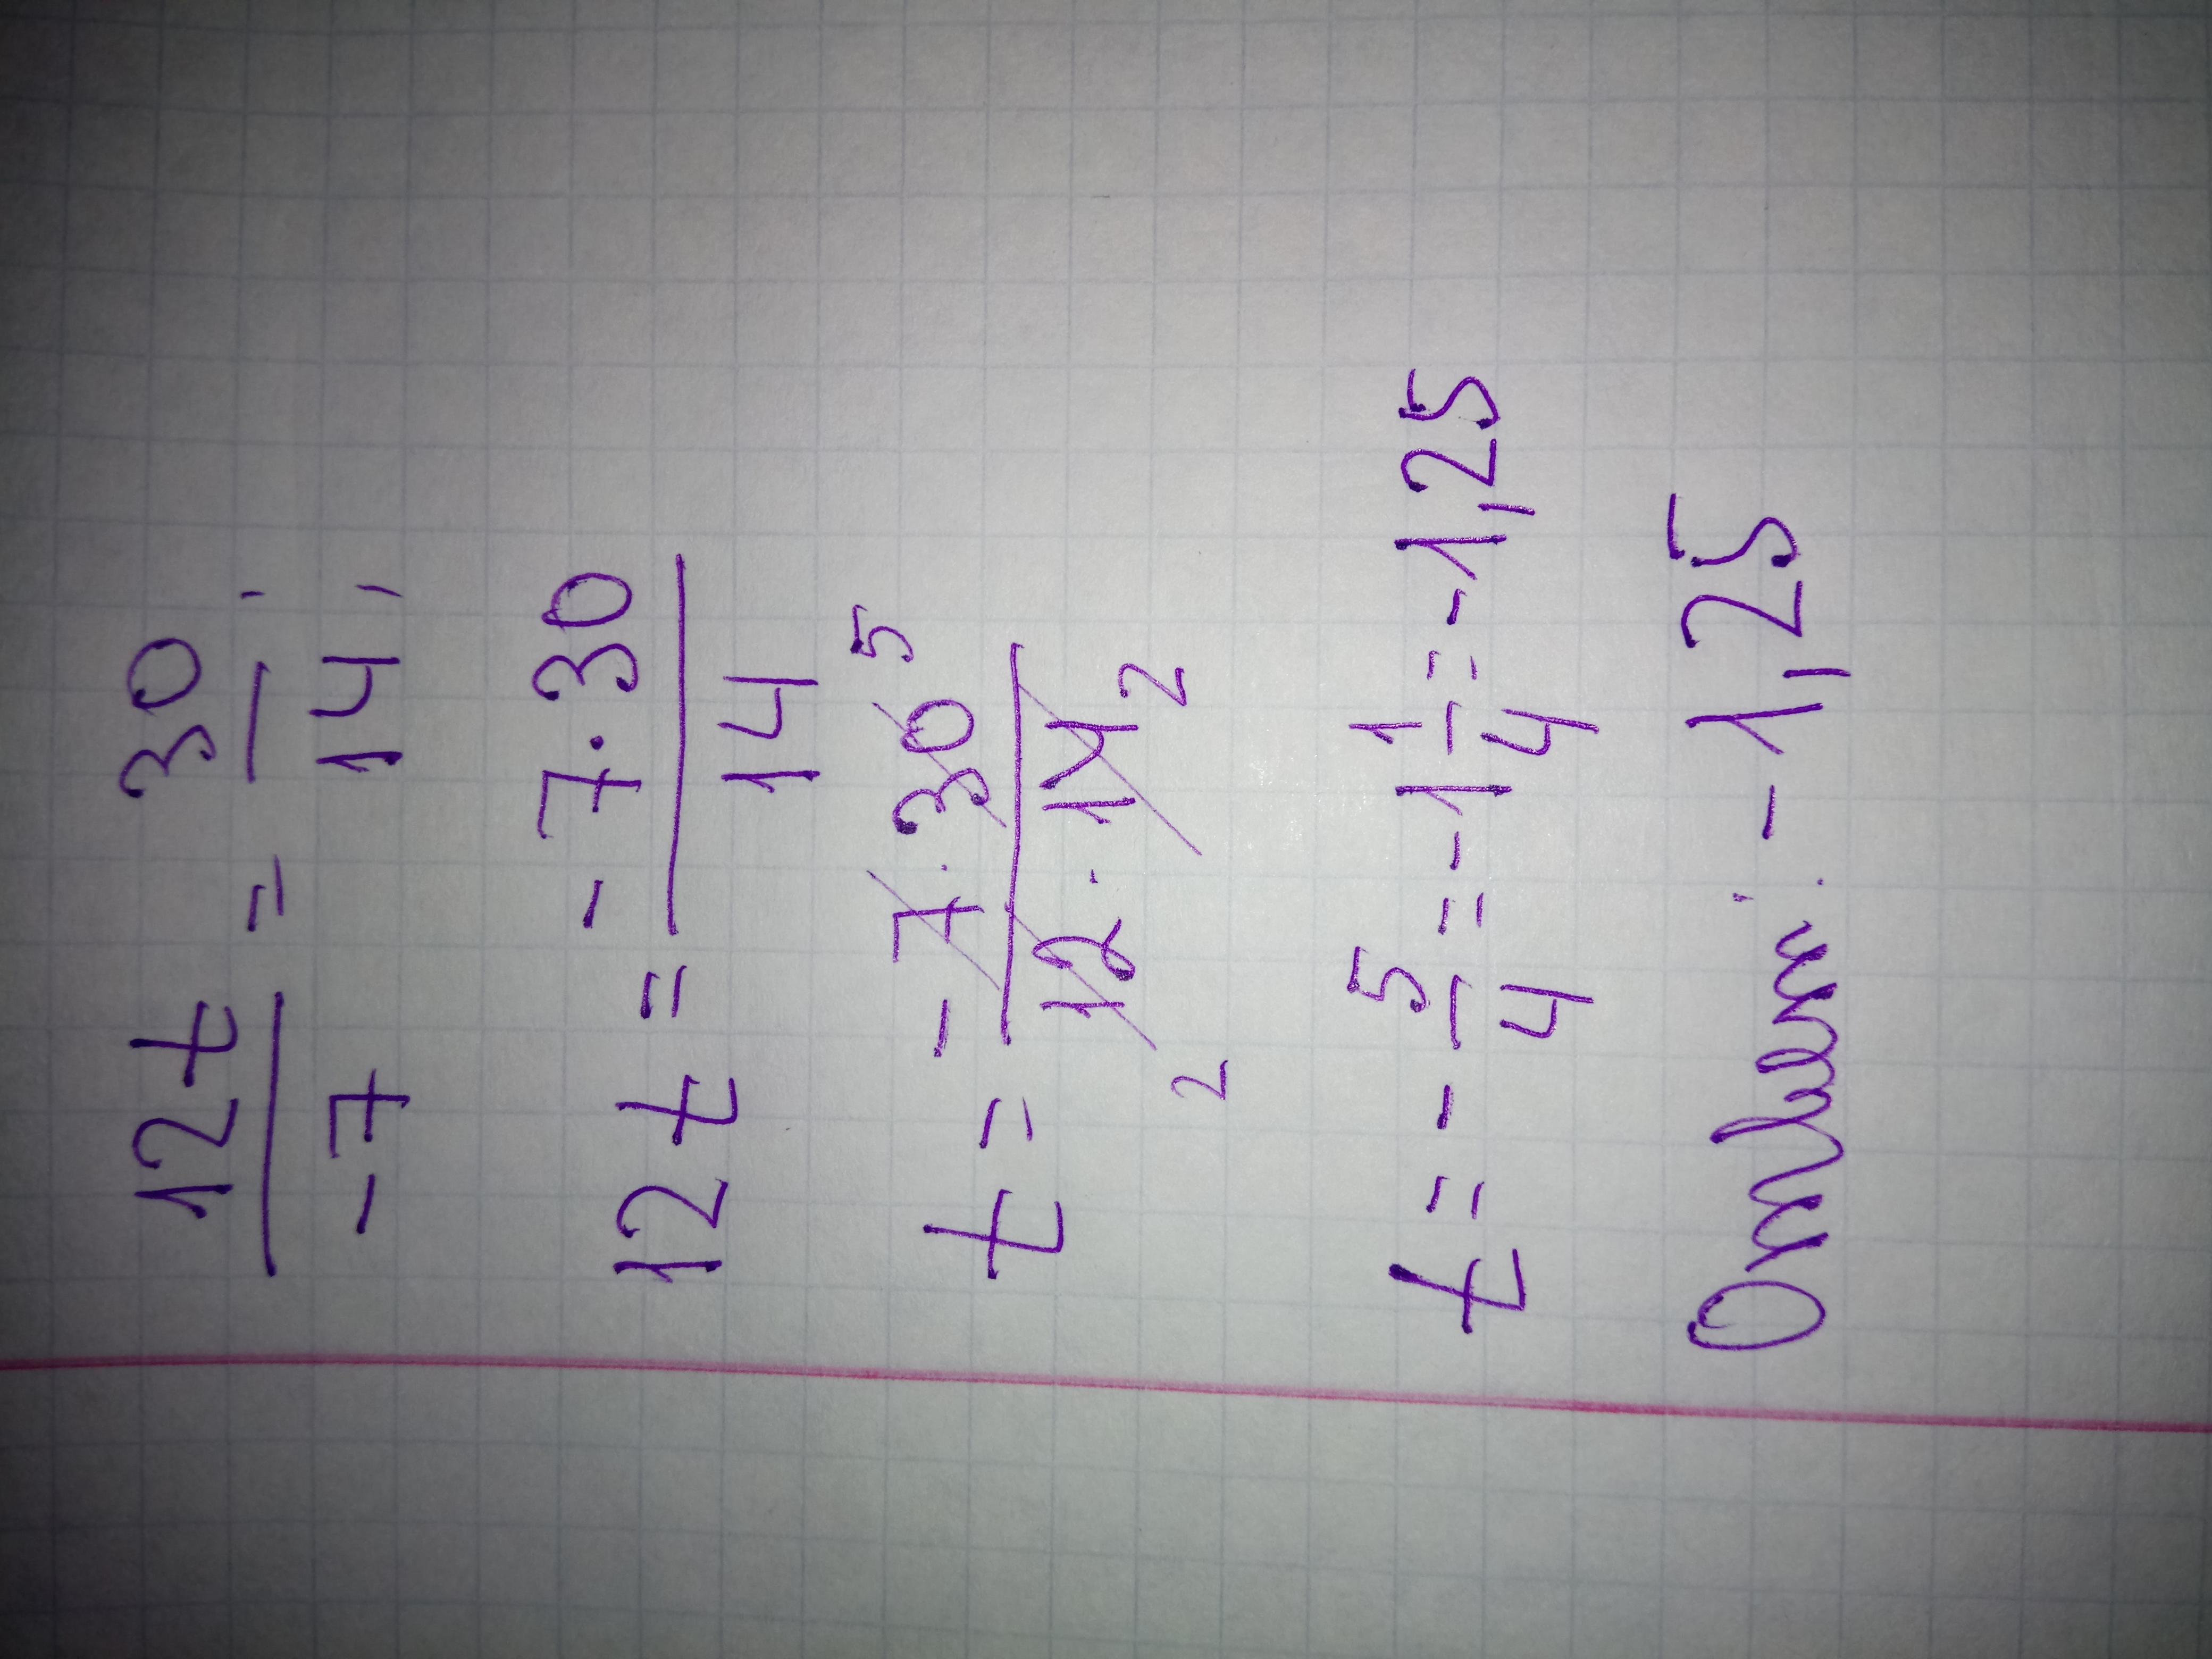 12t/-7 = 30/14;
12t = -7·30/14
t = - 7·30 5/12·14 2 2
t = - 5/4 = -1 1/4 = -1,25
Ответ: -1,25